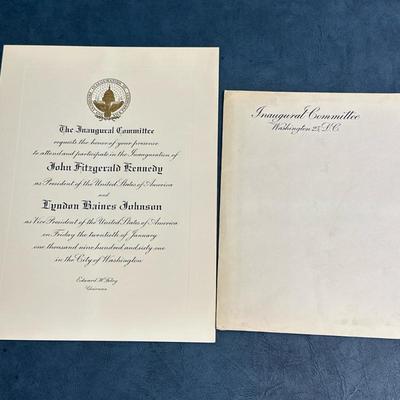 The Inaugural Committee
requests the honor of your presence
to attend and participate in the Inauguration of
John Fitzgerald Kennedy
as President of the United States of America
and
Lyndon Baines Johnson
as Vice President of the United States of America
on Friday the twentieth of January
one thousand nine hundred and sixty one
in the City of Washington
Edward H. Foley
Chairman
Inaugural Committee
Washington 25, D.C.